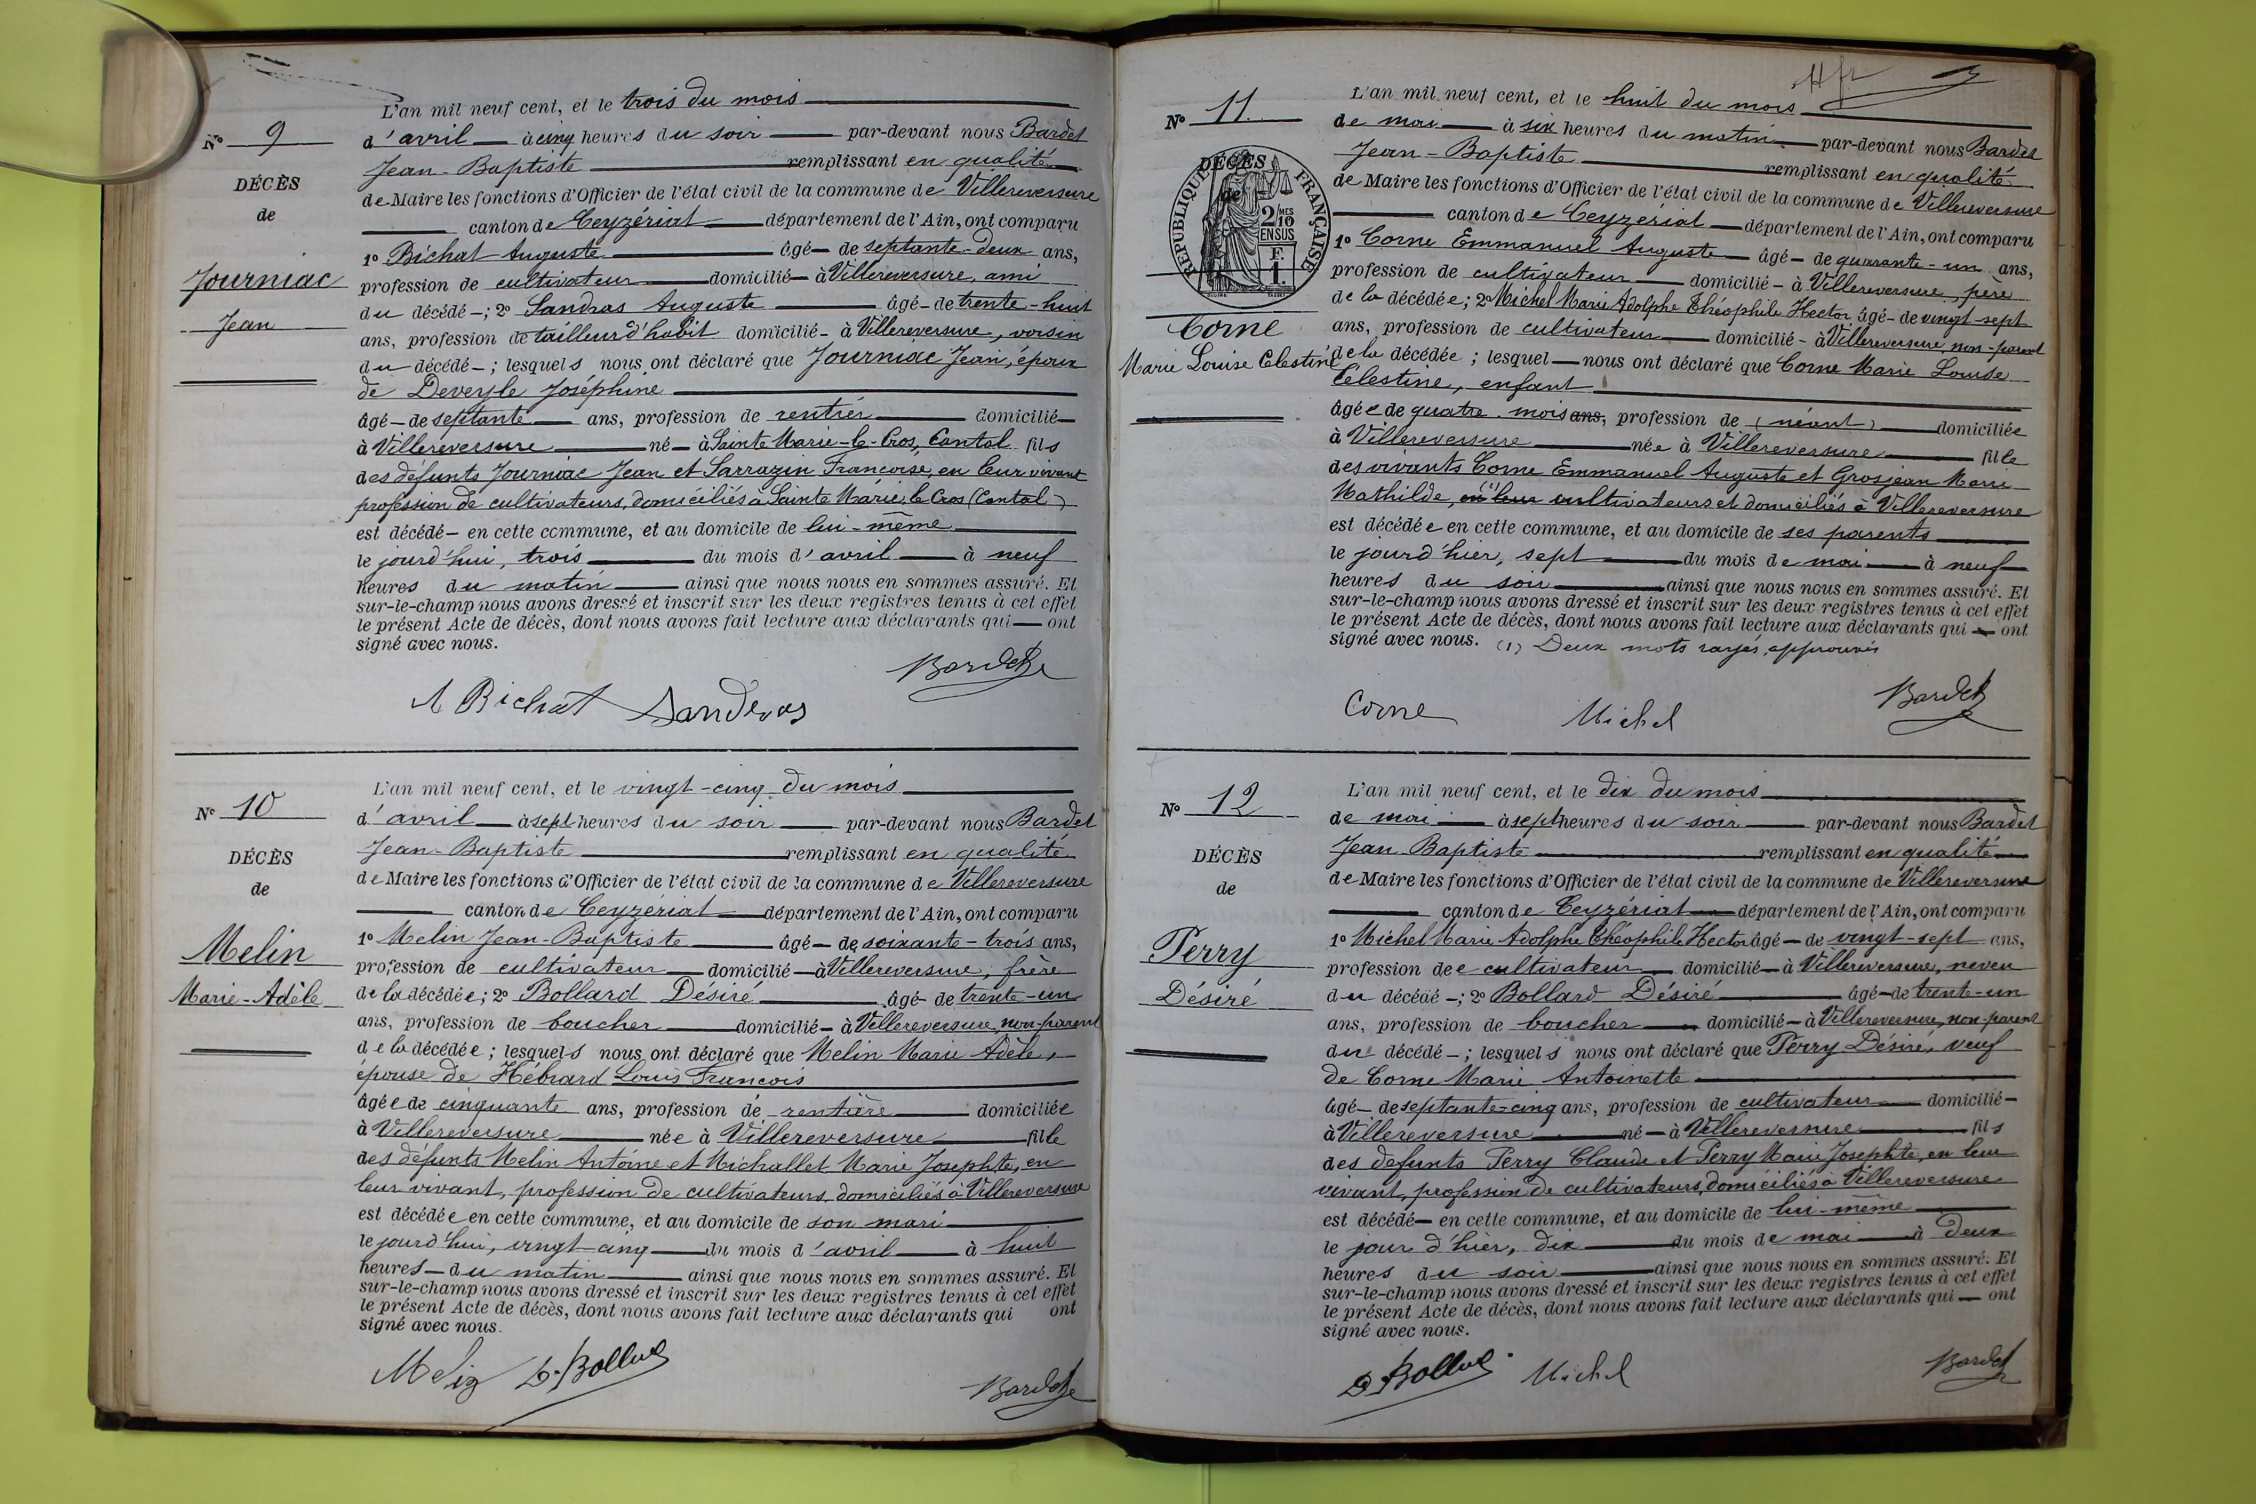 N° 9
DÉCÈS
de
Journiac
Jean
L'an mil neuf cent, et le trois du mois
d'avril à cinq heures du soir par-devant nous Bardet
Jean-Baptiste remplissant en qualité
de Maire les fonctions d'Officier de l'état civil de la commune de Villereversure
canton de Ceyzériat département de l'Ain, ont comparu
1° Bichat Auguste âgé de septante-deux ans,
profession de cultivateur domicilié à Villereversure, ami
du décédé; 2° Sandras Auguste âgé de trente-huit
ans, profession de tailleur d'habit domicilié à Villereversure, voisin
du décédé; lesquels nous ont déclaré que Journiac Jean, époux
de Deveyle Joséphine
âgé de septante ans, profession de rentier domicilié
à Villereversure né à Sainte Marie-le-Cros, Cantal fils
des défunts Journiac Jean et Sarrazin Françoise, en leur vivant
profession de cultivateurs, domiciliés à Sainte Marie le Cros (Cantal)
est décédé en cette commune, et au domicile de lui-même
le jourd'hui, trois du mois d'avril à neuf
heures du matin ainsi que nous nous en sommes assuré. Et
sur-le-champ nous avons dressé et inscrit sur les deux registres tenus à cet effet
le présent Acte de décès, dont nous avons fait lecture aux déclarants qui ont
signé avec nous.
Bardet
A Bichat Sanderas
N° 10
DÉCÈS
de
Melin
Marie-Adèle
L'an mil neuf cent, et le vingt-cinq du mois
d'avril à sept heures du soir par-devant nous Bardet
Jean-Baptiste remplissant en qualité
de Maire les fonctions d'Officier de l'état civil de la commune de Villereversure
canton de Ceyzériat département de l'Ain, ont comparu
1° Melin Jean-Baptiste âgé de soixante-trois ans,
profession de cultivateur domicilié à Villereversure, frère
de la décédée; 2° Bollard Désiré âgé de trente-un
ans, profession de boucher domicilié à Villereversure, non-parent
de la décédée; lesquels nous ont déclaré que Melin Marie Adèle,
épouse de Hébrard Louis François
âgée de cinquante ans, profession de rentière domiciliée
à Villereversure née à Villereversure fille
des défunts Melin Antoine et Michallet Marie Josephte, en
leur vivant, profession de cultivateurs, domiciliés à Villereversure
est décédée en cette commune, et au domicile de son mari
le jourd'hui, vingt-cinq du mois d'avril à huit
heures du matin ainsi que nous nous en sommes assuré. Et
sur-le-champ nous avons dressé et inscrit sur les deux registres tenus à cet effet
le présent Acte de décès, dont nous avons fait lecture aux déclarants qui ont
signé avec nous.
Melin D. Bollard
Bardet
N° 11
DÉCÈS
de
RÉPUBLIQUE FRANÇAISE
2/10 MES
EN SUS
1 F.
Corne
Marie Louise Celestine
L'an mil neuf cent, et le huit du mois
de mai à six heures du matin par-devant nous Bardet
Jean-Baptiste remplissant en qualité
de Maire les fonctions d'Officier de l'état civil de la commune de Villereversure
canton de Ceyzériat département de l'Ain, ont comparu
1° Corne Emmanuel Auguste âgé de quarante-un ans,
profession de cultivateur domicilié à Villereversure, père
de la décédée; 2° Michel Marie Adolphe Théophile Hector âgé de vingt-sept
ans, profession de cultivateur domicilié à Villereversure, non-parent
de la décédée; lesquel nous ont déclaré que Corne Marie Louise
Célestine, enfant
âgée de quatre mois ans, profession de (néant) domiciliée
à Villereversure née à Villereversure fille
des vivants Corne Emmanuel Auguste et Grosjean Marie
Mathilde, en leur (1) cultivateurs et domiciliés à Villereversure
est décédée en cette commune, et au domicile de ses parents
le jour d'hier, sept du mois de mai à neuf
heures du soir ainsi que nous nous en sommes assuré. Et
sur-le-champ nous avons dressé et inscrit sur les deux registres tenus à cet effet
le présent Acte de décès, dont nous avons fait lecture aux déclarants qui ont
signé avec nous. (1) Deux mots rayés approuvés
Corne Michel Bardet
N° 12
DÉCÈS
de
Perry
Désiré
L'an mil neuf cent, et le dix du mois
de mai à sept heures du soir par-devant nous Bardet
Jean Baptiste remplissant en qualité
de Maire les fonctions d'Officier de l'état civil de la commune de Villereversure
canton de Ceyzériat département de l'Ain, ont comparu
1° Michel Marie Adolphe Théophile Hector âgé de vingt-sept ans,
profession de cultivateur domicilié à Villereversure, neveu
du décédé; 2° Bollard Désiré âgé de trente-un
ans, profession de boucher domicilié à Villereversure, non-parent
du décédé; lesquels nous ont déclaré que Perry Désiré, veuf
de Corne Marie Antoinette
âgé de septante-cinq ans, profession de cultivateur domicilié
à Villereversure né à Villereversure fils
des défunts Perry Claude et Perry Marie Josephte, en leur
vivant, profession de cultivateurs, domiciliés à Villereversure
est décédé en cette commune, et au domicile de lui-même
le jour d'hier, dix du mois de mai à deux
heures du soir ainsi que nous nous en sommes assuré. Et
sur-le-champ nous avons dressé et inscrit sur les deux registres tenus à cet effet
le présent Acte de décès, dont nous avons fait lecture aux déclarants qui ont
signé avec nous.
D. Bollard Michel Bardet